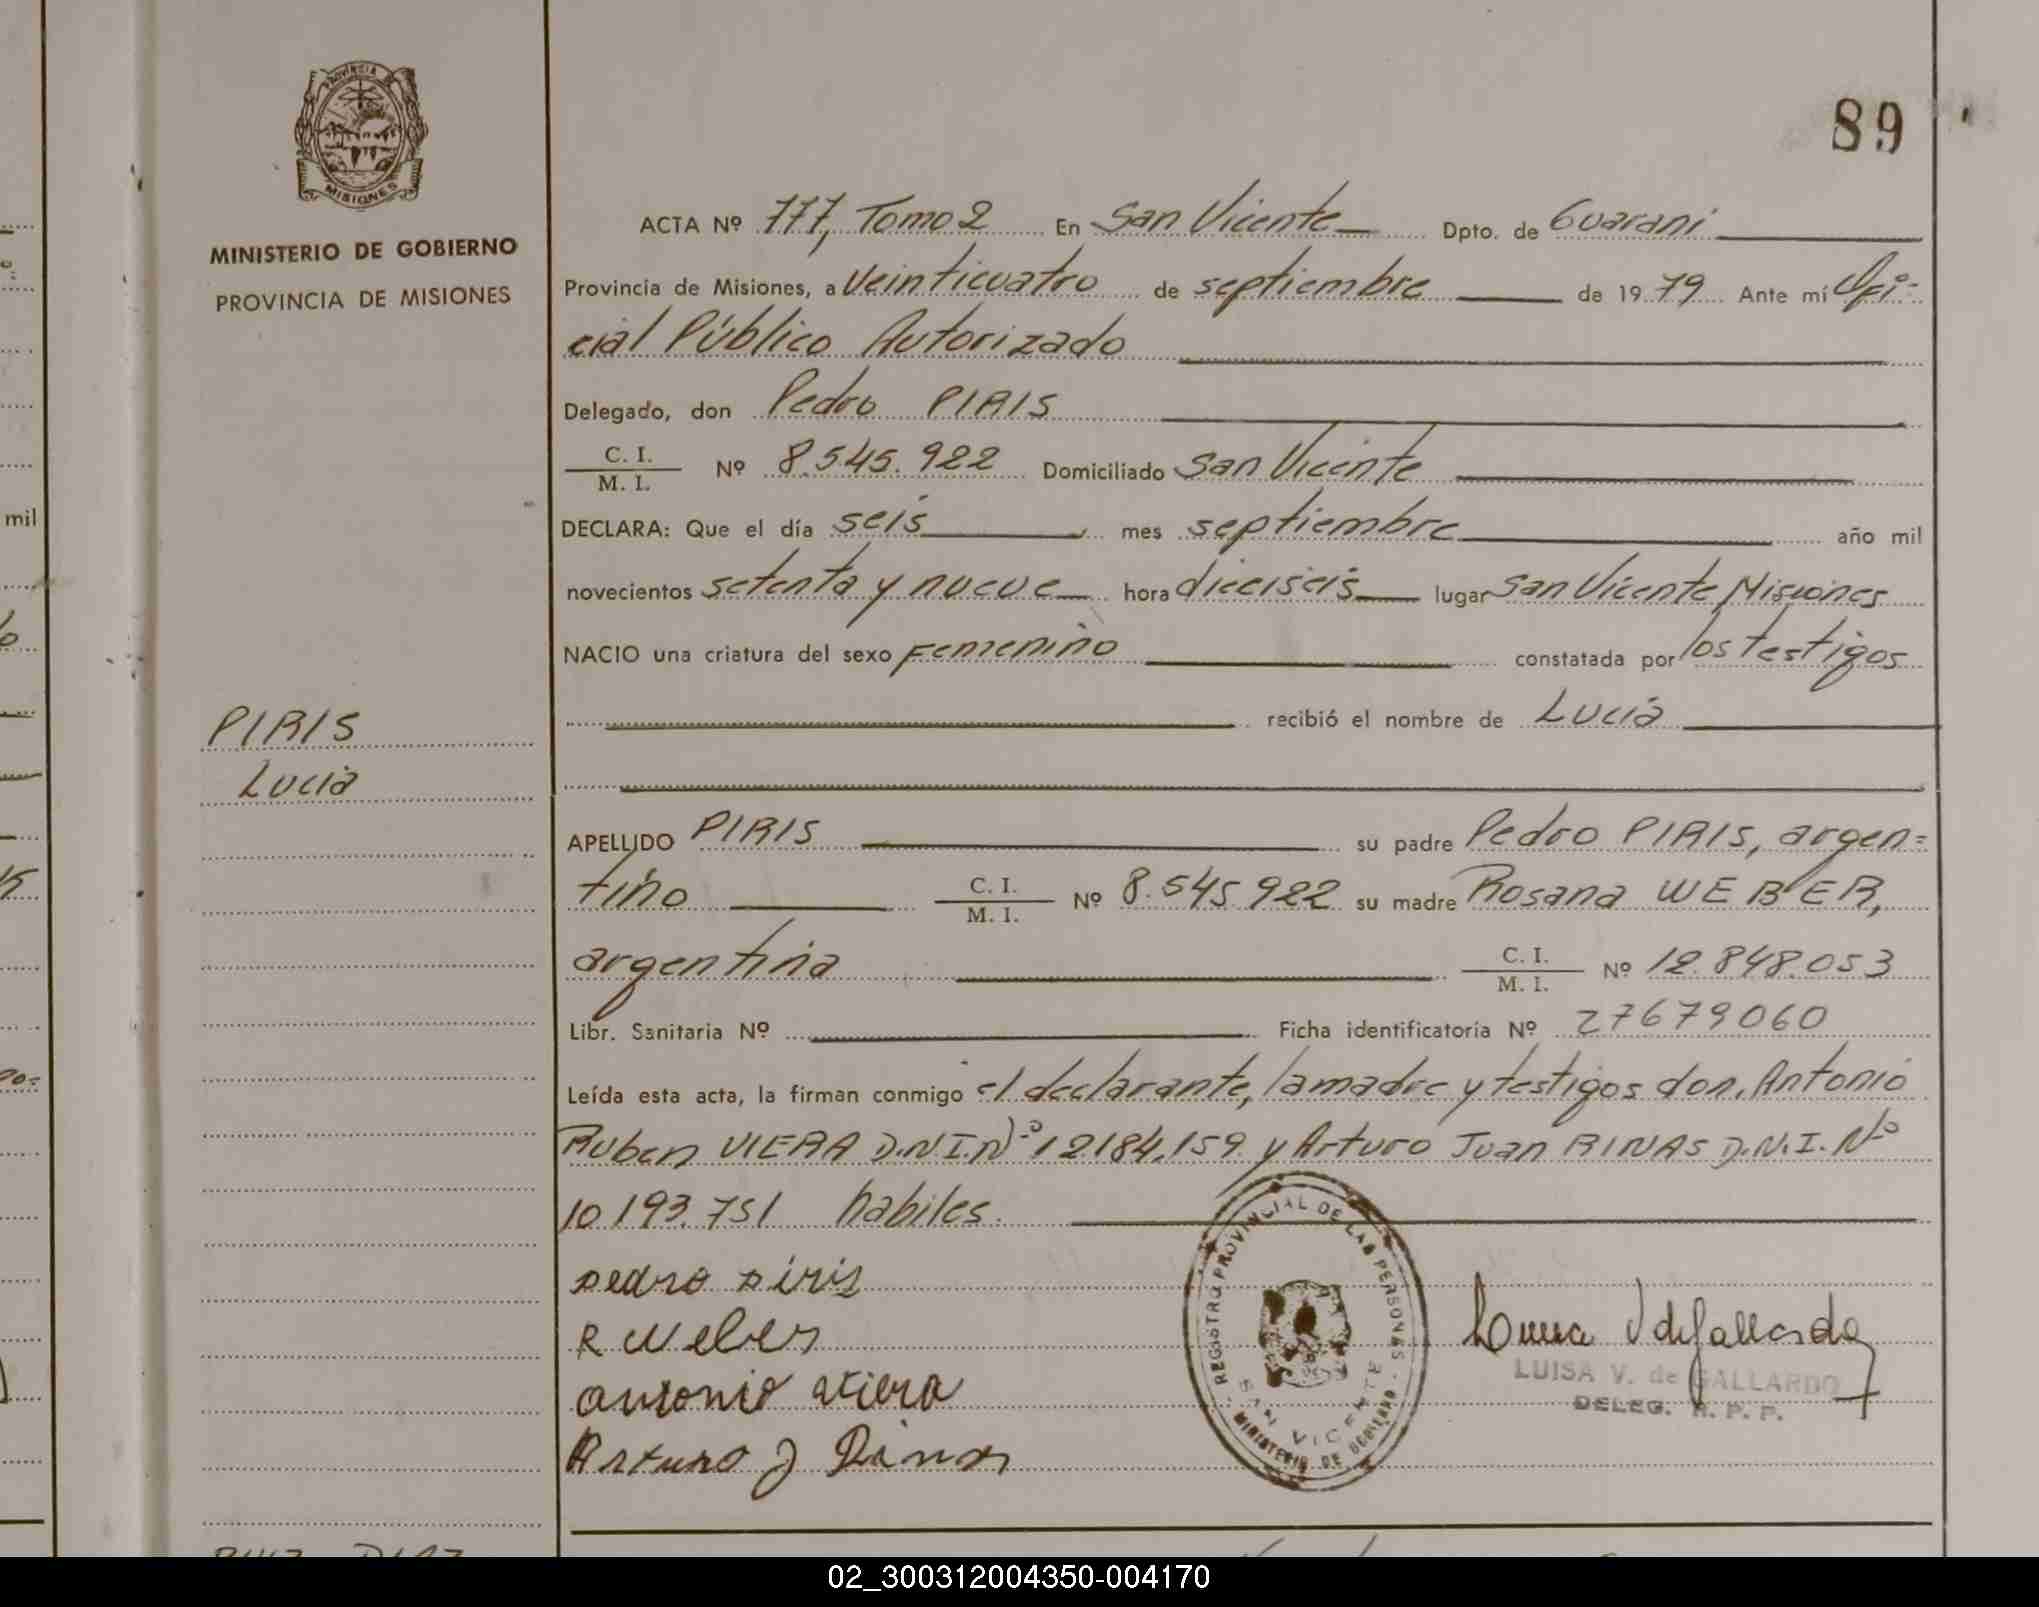 PROVINCIA DE
MISIONES
MINISTERIO DE GOBIERNO
PROVINCIA DE MISIONES
PIRIS
Lucia
89
ACTA Nº 777, Tomo 2 En San Vicente Dpto. de Guarani
Provincia de Misiones, a veinticuatro de septiembre de 1979 Ante mí Ofi=
cial Público Autorizado
Delegado, don Pedro PIRIS
C. I.
M. I. Nº 8.545.922 Domiciliado San Vicente
DECLARA: Que el día seis mes septiembre año mil
novecientos setenta y nueve hora dieciseis lugar San Vicente Misiones
NACIO una criatura del sexo Femenino constatada por los testigos
recibió el nombre de Lucia
APELLIDO PIRIS su padre Pedro PIRIS, argen=
tino C. I. M. I. Nº 8.545.922 su madre Rosana WEBER,
argentina C. I. M. I. Nº 12.848.053
Libr. Sanitaria Nº Ficha identificatoria Nº 27679060
Leída esta acta, la firman conmigo el declarante, la madre y testigos don. Antonio
Ruben VIERA D.N.I. Nº 12.184.159 y Arturo Juan RINAS D.N.I. Nº
10.193.751 habiles.
pedro piris
R Weber
antonio viera
Arturo J Rinas
REGISTRO PROVINCIAL DE LAS PERSONAS
SAN VICENTE
MINISTERIO DE GOBIERNO
LUISA V. de GALLARDO
DELEG. R. P. P.
mil
02_300312004350-004170